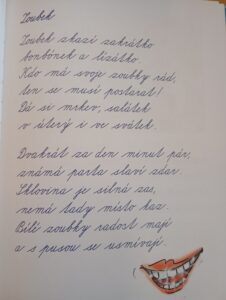 Zoubek
Zoubek zkazí zakrátko
bonbónek a lízátko.
Kdo má svoje zoubky rád,
ten se musí postarat!
Dá si mrkev, salátek
v úterý i ve svátek.
Dvakrát za den minut pár,
známá parta slaví zdar.
Sklovina je silná zas,
nemá tady místo kaz.
Bílé zoubky radost mají
a s pusou se usmívají.